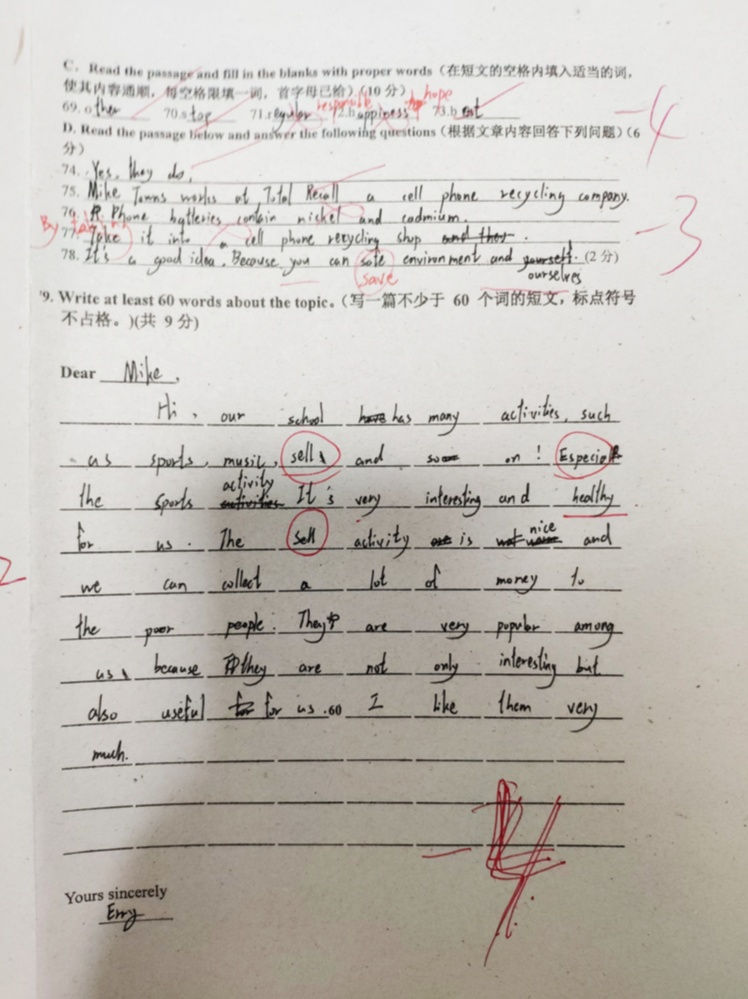 C. Read the passage and fill in the blanks with proper words (在短文的空格内填入适当的词,
使其内容通顺,每空格限填一词,首字母已给)(10 分)
responsible hope
69. other 70. stop 71. regular 72. happiness 73. b
D. Read the passage below and answer the following questions (根据文章内容回答下列问题)(6
分)
-4
74. Yes, they do.
75. Mike Towns works at Total Recall a cell phone recycling company.
76. Phone batteries contain nickel and cadmium.
By taking
77. Take it into a cell phone recycling shop and ther.
-3
78. It's a good idea. Because you can safe environment and yourself. (2 分)
save ourselves
9. Write at least 60 words about the topic. (写一篇不少于 60 个词的短文,标点符号
不占格。)(共 9 分)
Dear Mike,
Hi, our school have has many activities, such
as sports, music, sell, and so on! Especial
activity
the sports activities It's very interesting and healthy
nice
for us. The sell activity are is and
we can collect a lot of money to
the poor people. They are very popular among
us, because they are not only interesting but
also useful for for us. 60 I like them very
much.
Yours sincerely
Emy